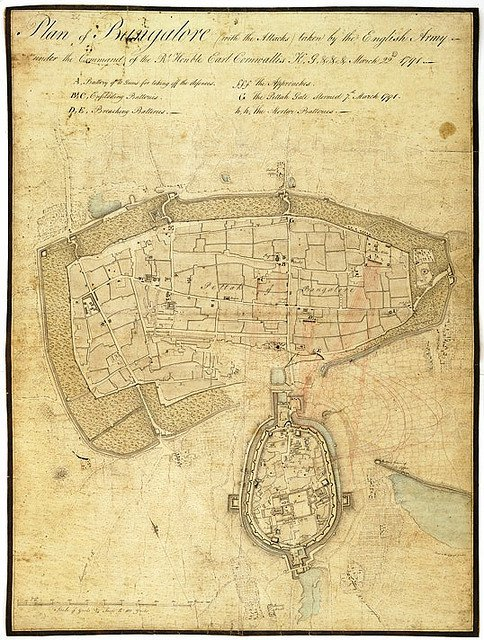 Plan of Bangalore with the Attacks taken by the English Army
under the Command of the Rt. Honble. Earl Cornwallis K.G. &.&.& March 22d 1791
A. Battery of Guns for taking off the defences.
B.C, Enfilading Batteries.
D, E, Breaching Batteries.
f,f,f the Approaches.
G the Pettah Gate stormed 7th March 1791.
h, h, the Mortar Batteries.
Pettah of Bangalore
Scale of